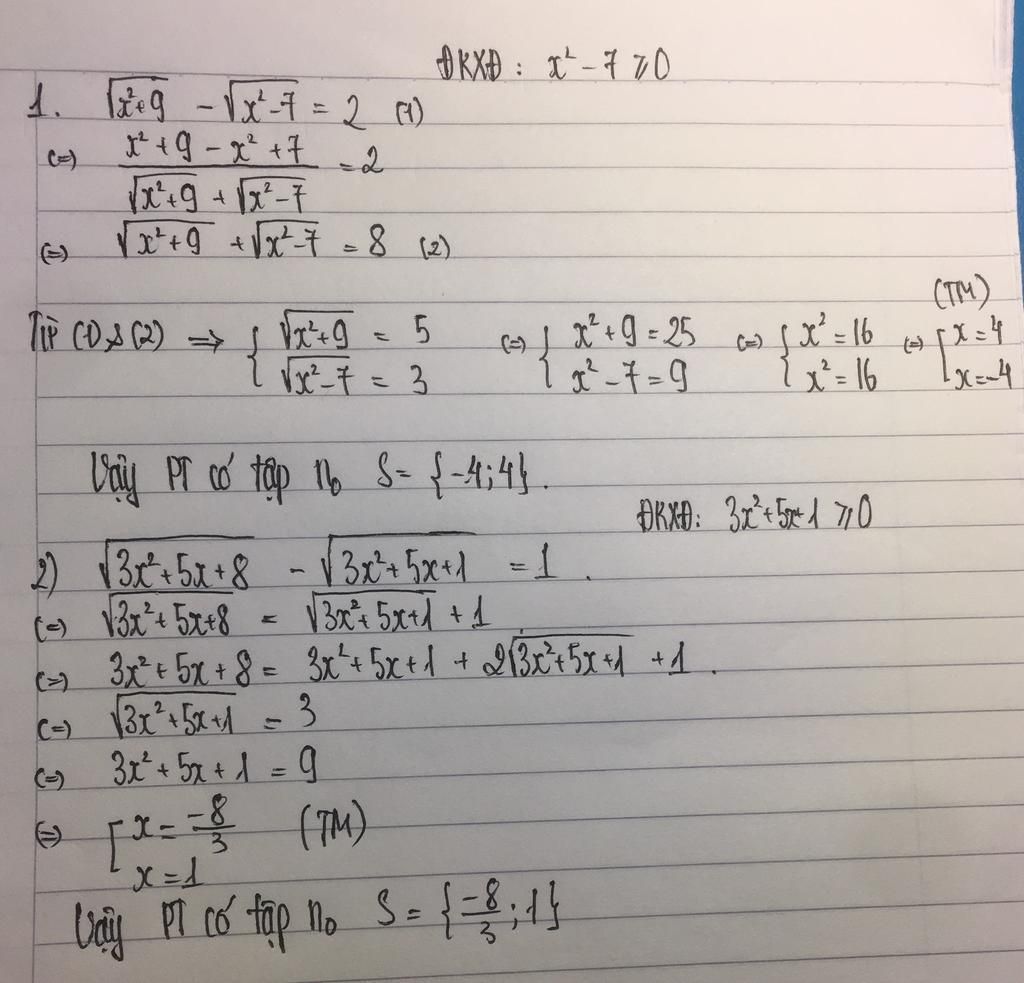 ĐKXĐ: x² - 7 ≥ 0
1. √(x²+9) - √(x²-7) = 2 (1)
(=) (x² + 9 - x² + 7)/(√(x²+9) + √(x²-7)) = 2
(=) √(x²+9) + √(x²-7) = 8 (2)
Từ (1) & (2) ⇒ { √(x²+9) = 5 ; √(x²-7) = 3 (=) { x² + 9 = 25 ; x² - 7 = 9 (=) { x² = 16 ; x² = 16 (=) [ x = 4 ; x = -4 (TM)
Vậy PT có tập n₀ S = {-4; 4}.
ĐKXĐ: 3x²+5x+1 ≥ 0
2) √(3x²+5x+8) - √(3x²+5x+1) = 1.
(=) √(3x²+5x+8) = √(3x²+5x+1) + 1
(=) 3x² + 5x + 8 = 3x² + 5x + 1 + 2√(3x²+5x+1) + 1.
(=) √(3x²+5x+1) = 3
(=) 3x² + 5x + 1 = 9
(=) [ x = -8/3 ; x = 1 (TM)
Vậy PT có tập n₀ S = {-8/3; 1}